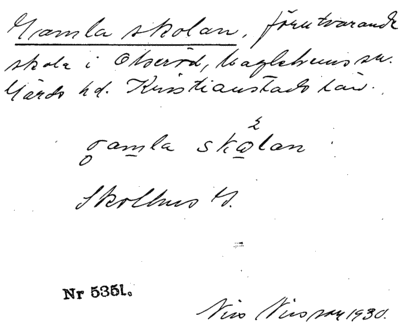 Gamla skolan, förutvarande
skola i Olseröd, Maglehems sn.
Gärds hd. Kristianstads län.
gamla skolan
Skolhus
Nr 5351.
Nils Nilsson 1930.